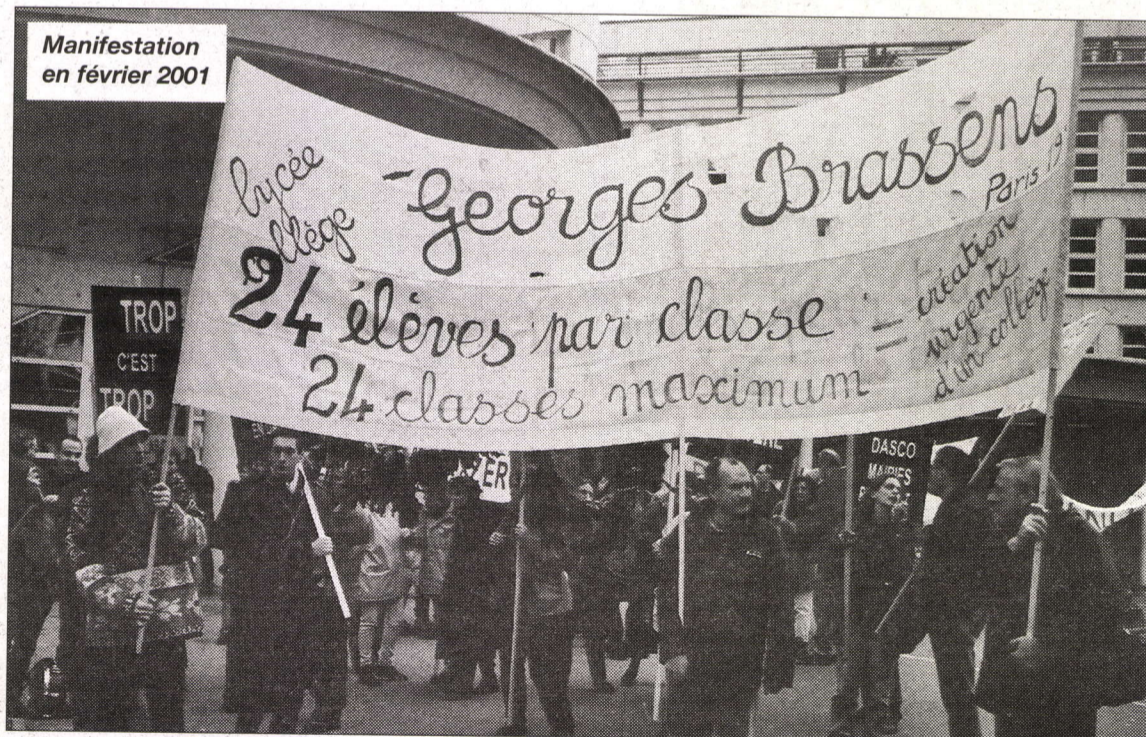 Manifestation
en février 2001
lycée
collège
Georges Brassens
Paris 19
24 élèves par classe
24 classes maximum
création
urgente
d'un collège
TROP
C'EST
TROP
ER
DASCO
MAIRIES